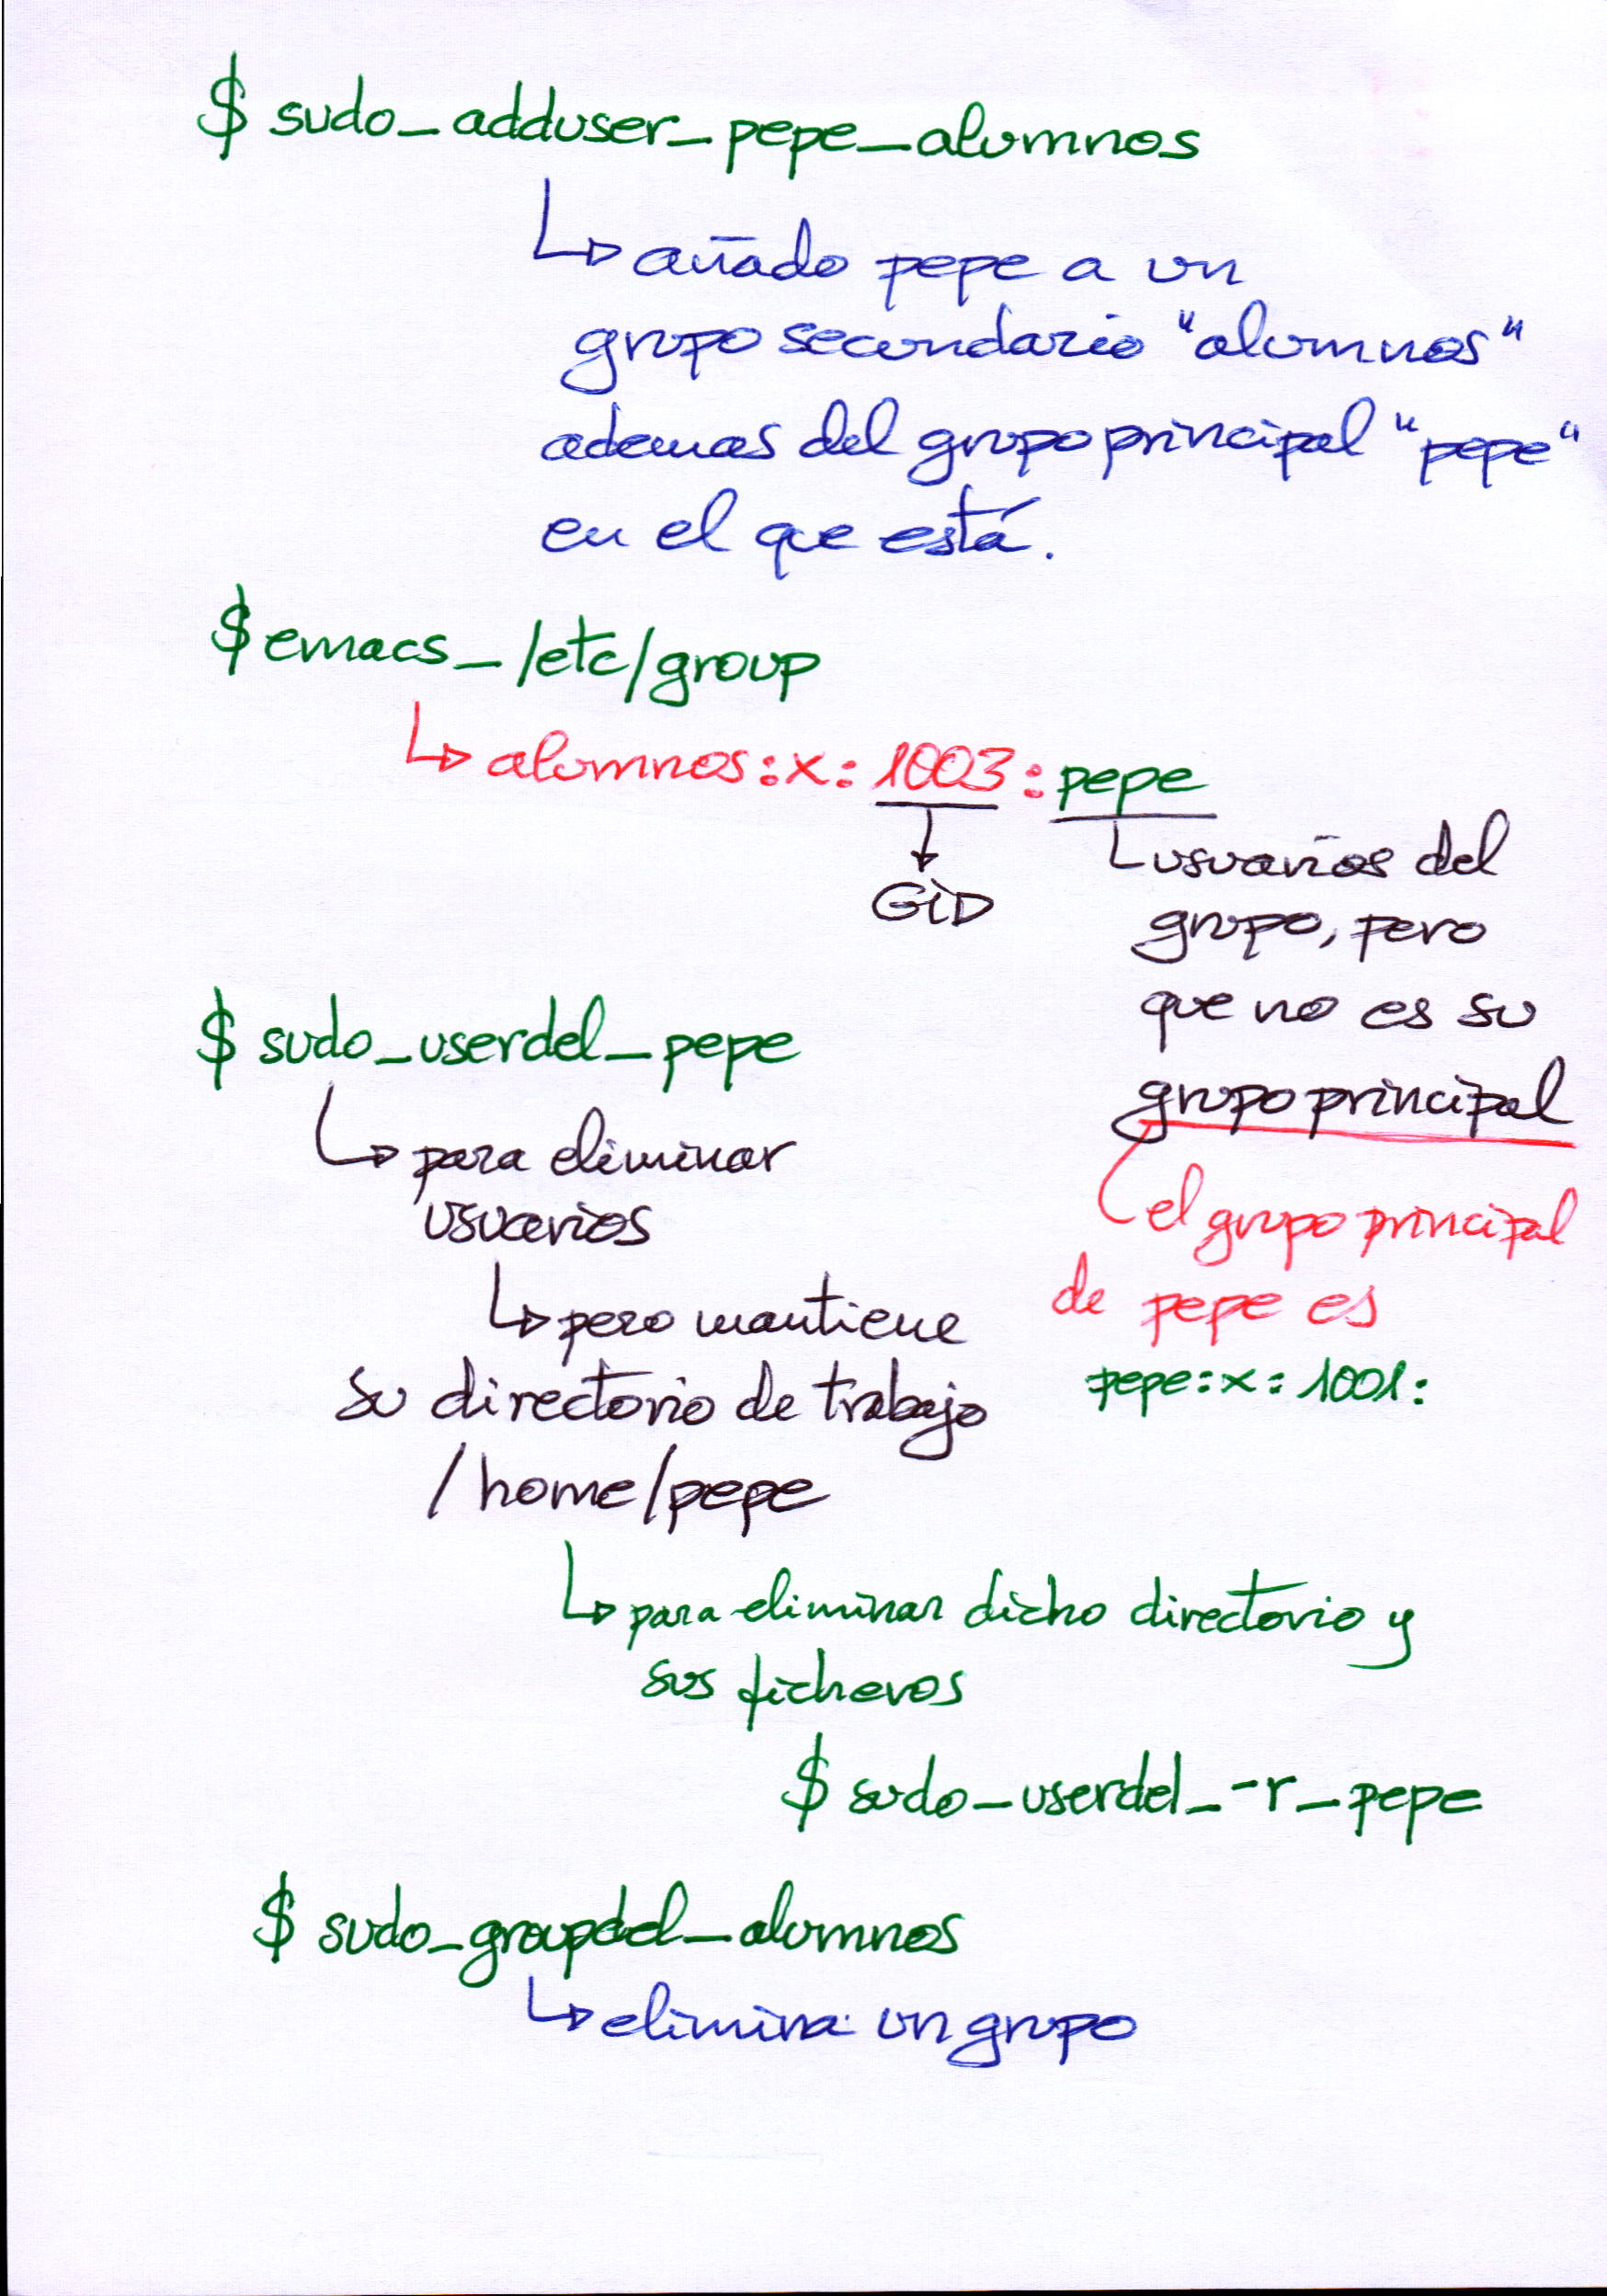 $ sudo_adduser_pepe_alumnos
añado pepe a un
grupo secundario "alumnos"
ademas del grupo principal "pepe"
en el que está.
$ emacs_/etc/group
alumnos:x:1003:pepe
GID
usuarios del
grupo, pero
que no es su
grupo principal
el grupo principal
de pepe es
pepe:x:1001:
$ sudo_userdel_pepe
para eliminar
usuarios
pero mantiene
su directorio de trabajo
/home/pepe
para eliminar dicho directorio y
sus ficheros
$ sudo_userdel_-r_pepe
$ sudo_groupdel_alumnos
elimina un grupo